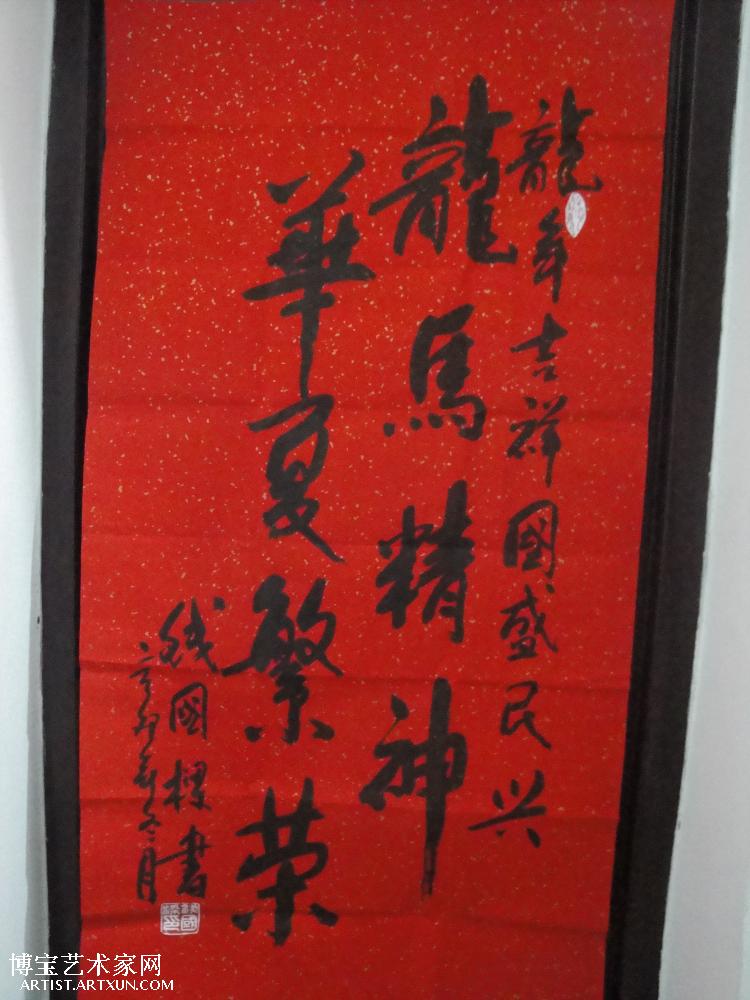 龍年吉祥國盛民兴
龍馬精神
華夏繁荣
钱國樑書
辛卯年冬月
博宝艺术家网
ARTIST.ARTXUN.COM